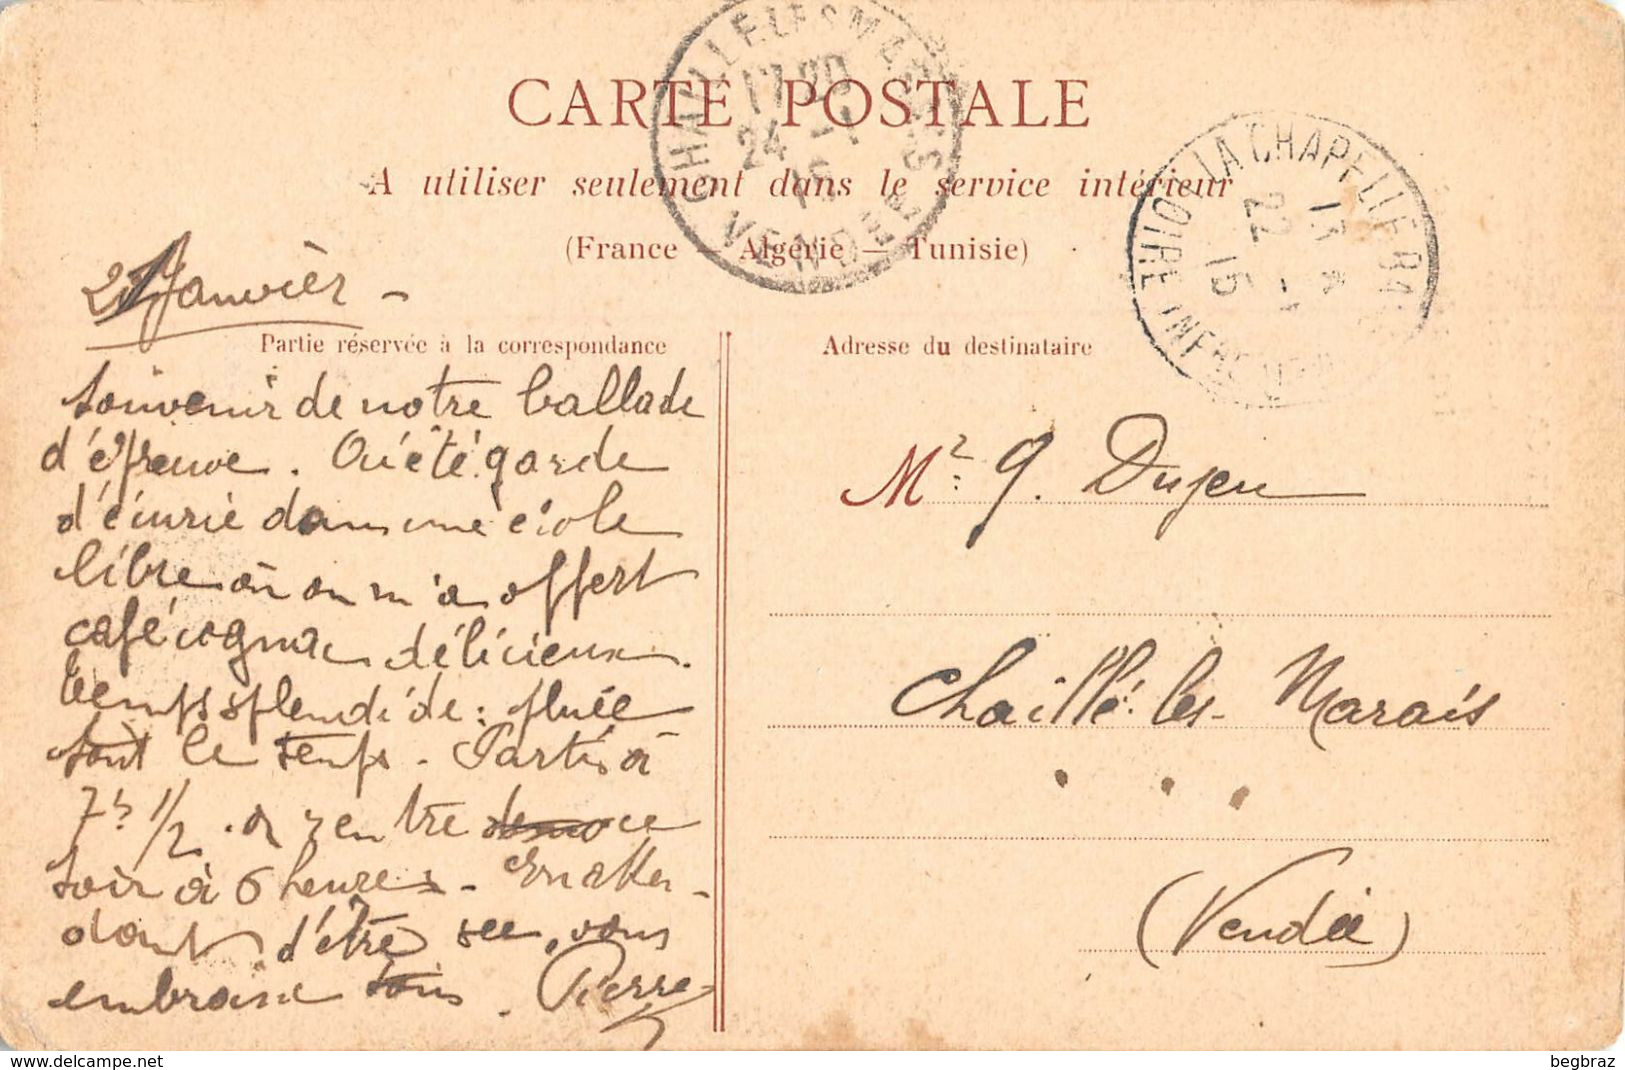 CARTE POSTALE
A utiliser seulement dans le service intérieur
(France — Algérie — Tunisie)
CHAILLE LES MARAIS
17 30
24 -1
15
VENDEE
LA CHAPELLE
13
22 -1
15
LOIRE INFRE
21 Janvier -
Partie réservée à la correspondance
Souvenir de notre ballade
d'épreuve. Ai été garde
d'écurie dans une école
libre où on m'a offert
café cognac délicieux.
temps splendide : pluie
tout le temps - Partis à
7h 1/2 . on rentre ce
soir à 6 heures - En atten-
dant d'être sec, vous
embrasse tous. Pierre
Adresse du destinataire
Mr G. Dujeu
Chaillé-les-Marais
(Vendée)
begbraz